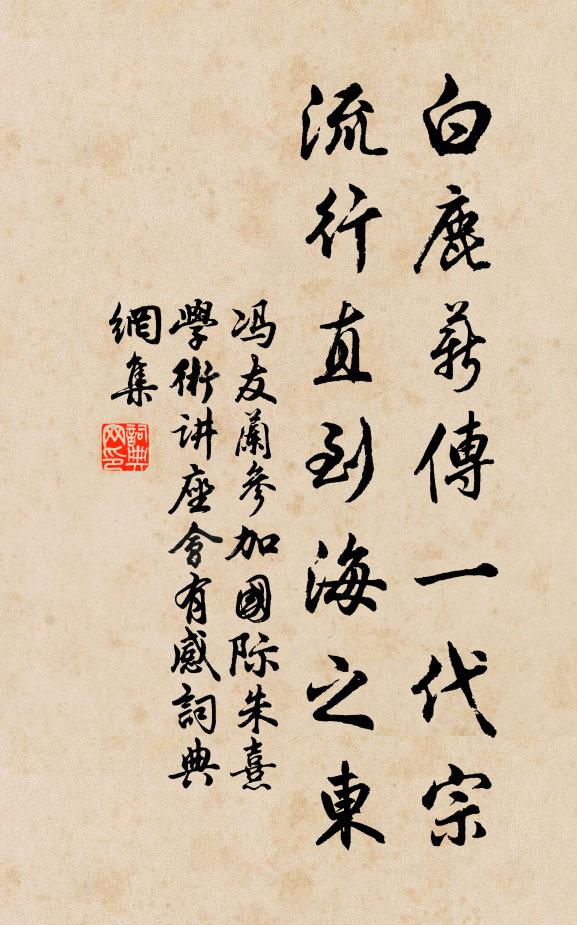 白鹿薪傳一代宗
流行直到海之東
冯友蘭參加國际朱熹
學術讲座會有感詞典
網集
詞典
网印